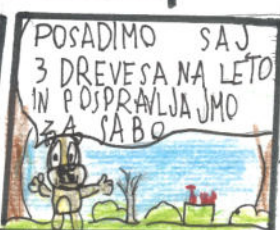 POSADIMO SAJ
3 DREVESA NA LETO
IN POSPRAVLJAJMO
ZA SABO